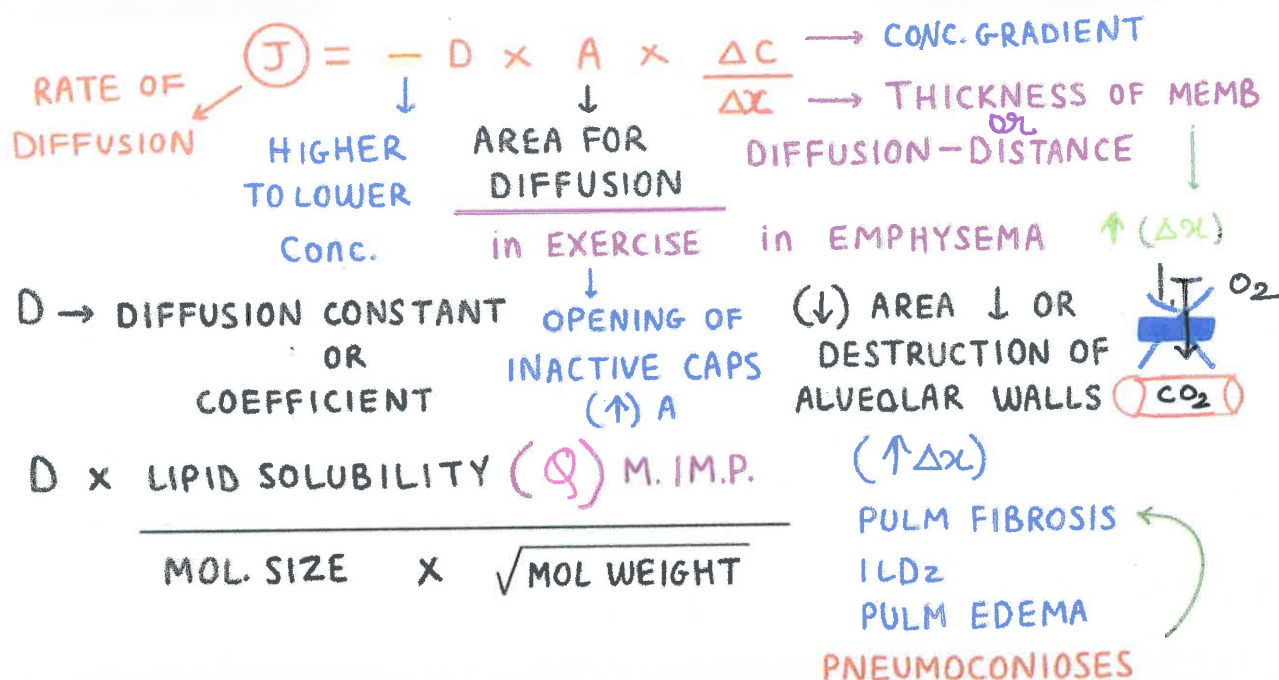 J = − D × A × ΔC/Δx → CONC. GRADIENT
→ THICKNESS OF MEMB
or
DIFFUSION – DISTANCE
RATE OF
DIFFUSION
↓
HIGHER
TO LOWER
Conc.
↓
AREA FOR
DIFFUSION
in EXERCISE
↓
OPENING OF
INACTIVE CAPS
(↑) A
in EMPHYSEMA
(↓) AREA ↓ OR
DESTRUCTION OF
ALVEOLAR WALLS
↑ (Δx)
O2
CO2
D → DIFFUSION CONSTANT
OR
COEFFICIENT
D × LIPID SOLUBILITY (Q) M. IM.P.
MOL. SIZE × √MOL WEIGHT
(↑Δx)
PULM FIBROSIS
ILDz
PULM EDEMA
PNEUMOCONIOSES